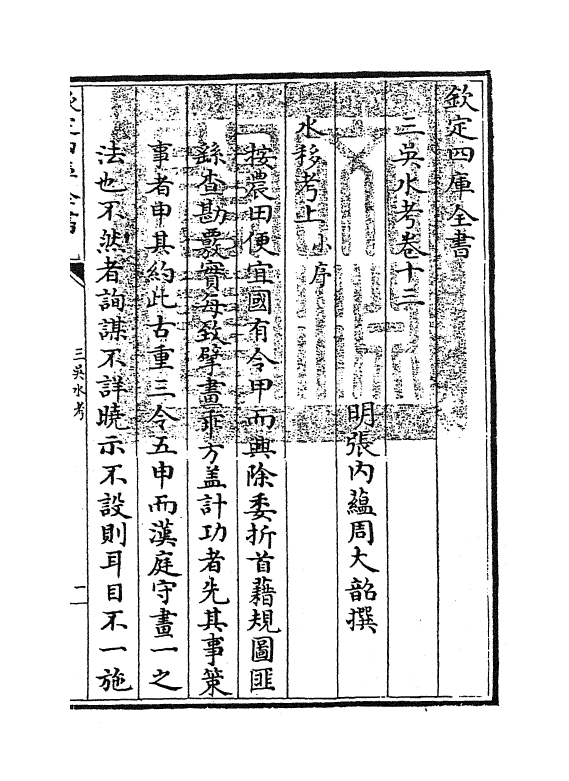 欽定四庫全書
三吳水考卷十三
明張内蘊周大韶撰
水移考上小序
按農田便宜國有令甲而興除委折首藉規圖匪
繇查勘覈實每致擘畫乖方盖計功者先其事策
事者申其約此古重三令五申而漢庭守畫一之
法也不然者詢謀不詳曉示不設則耳目不一施
三吳水考
二